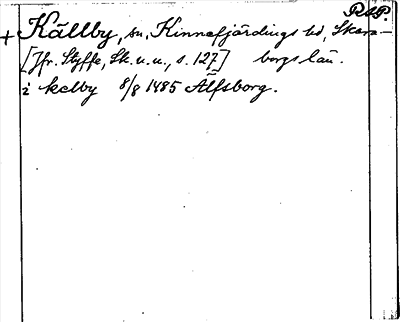 RAP.
+ Källby, sn, Kinnefjärdings hd, Skara-
[Jfr. Styffe, Sk. u. u., s. 127] borgs län.
i kelby 8/8 1485 Älfsborg.